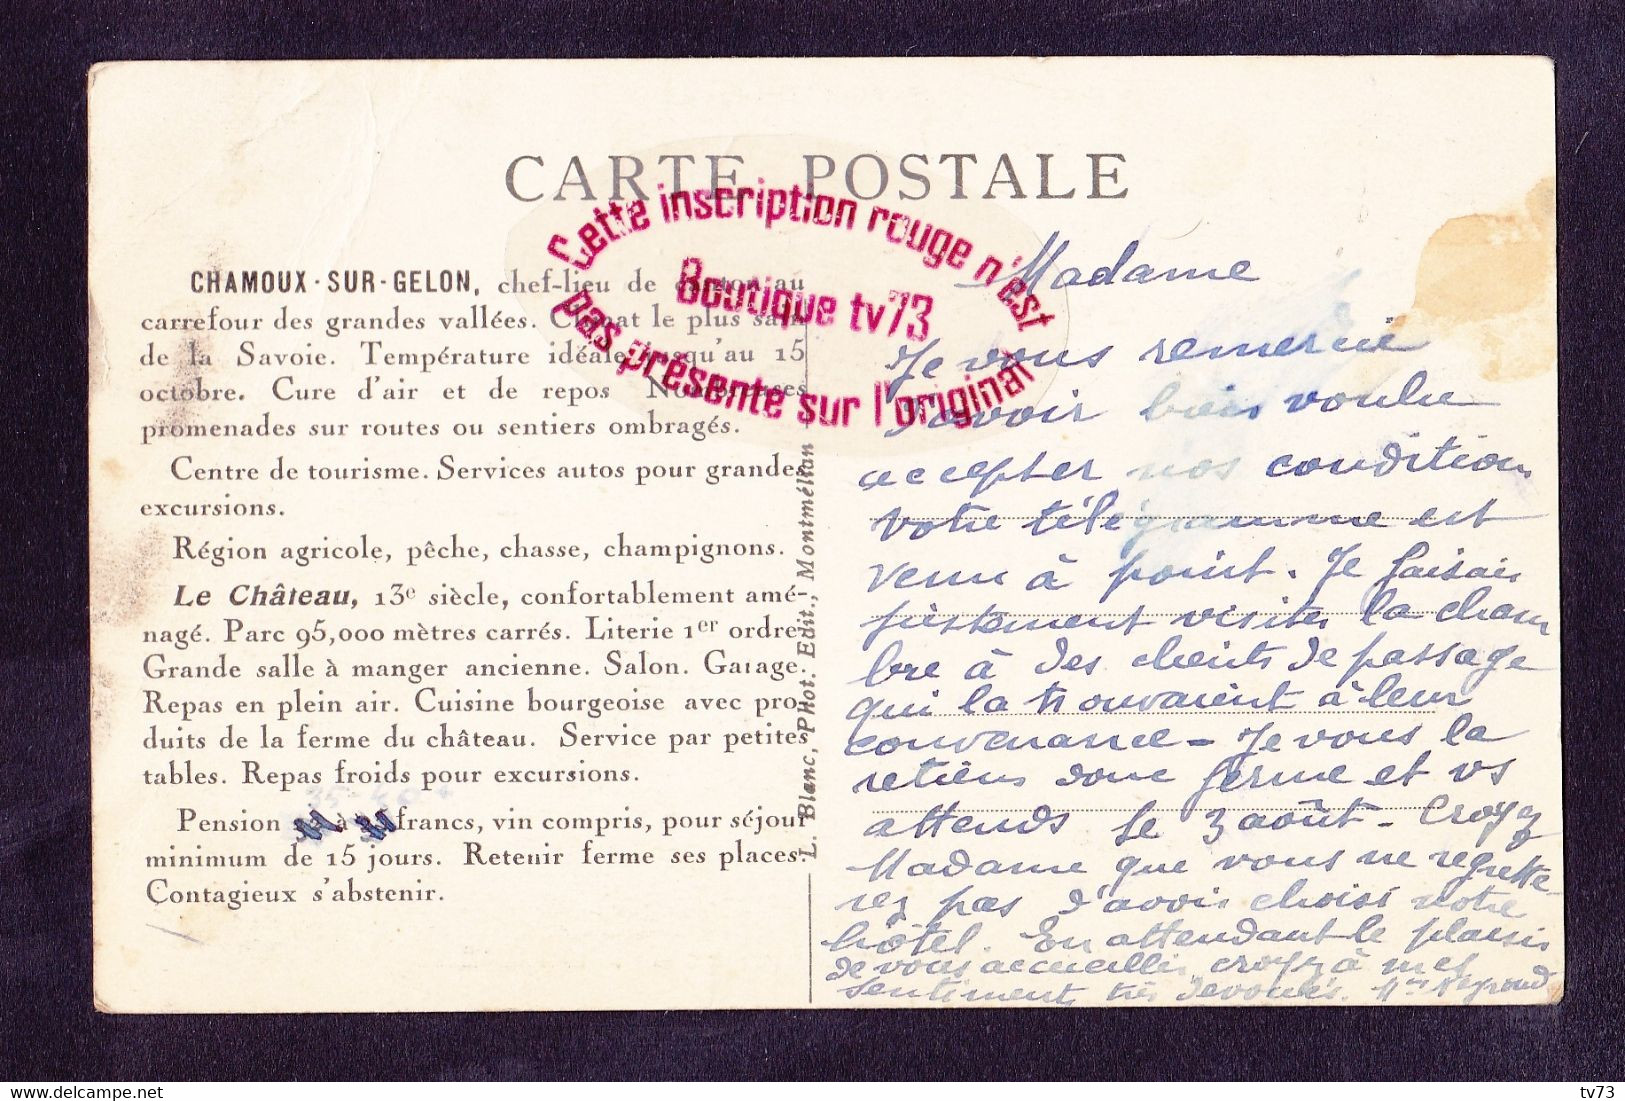 CARTE POSTALE
Cette inscription rouge n'est
Boutique tv73
pas présente sur l'original
CHAMOUX-SUR-GELON, chef-lieu de canton au
carrefour des grandes vallées. Climat le plus sain
de la Savoie. Température idéale jusqu'au 15
octobre. Cure d'air et de repos Nombreuses
promenades sur routes ou sentiers ombragés.
Centre de tourisme. Services autos pour grandes
excursions.
Région agricole, pêche, chasse, champignons.
Le Château, 13e siècle, confortablement amé-
nagé. Parc 95,000 mètres carrés. Literie 1er ordre.
Grande salle à manger ancienne. Salon. Garage.
Repas en plein air. Cuisine bourgeoise avec pro-
duits de la ferme du château. Service par petites
tables. Repas froids pour excursions.
35-40 +
Pension à francs, vin compris, pour séjour
minimum de 15 jours. Retenir ferme ses places.
Contagieux s'abstenir.
L. Blanc, Phot. Edit., Montmélian
Madame
Je vous remercie
d'avoir bien voulu
accepter nos conditions
votre télégramme est
venu à point. Je faisais
justement visiter la cham
bre à des clients de passage
qui la trouvaient à leur
convenance - Je vous la
retiens donc ferme et vs
attends le 3 août - Croyez
Madame que vous ne regrette-
rez pas d'avoir choisi notre
hôtel. En attendant le plaisir
de vous accueillir, croyez à mes
sentiments très dévoués. Mme
tv73